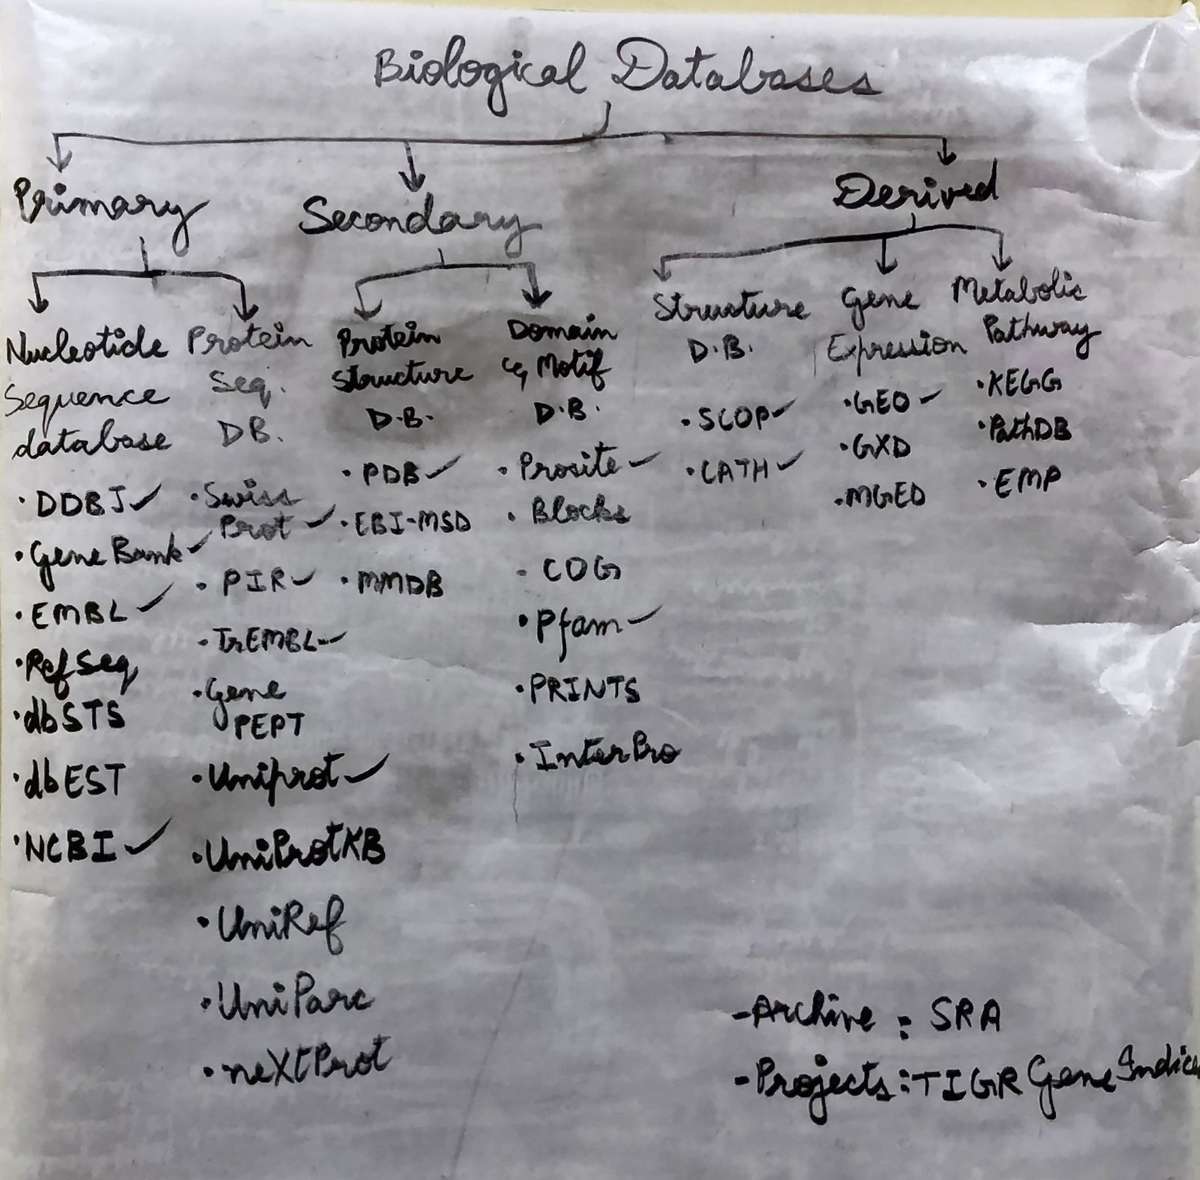 Biological Databases
Primary
Secondary
Derived
Nucleotide
Sequence
database
• DDBJ ✓
• Gene Bank ✓
• EMBL ✓
• RefSeq
• dbSTS
• dbEST
• NCBI ✓
Protein
Seq.
DB.
• Swiss
Prot ✓
• PIR ✓
• TrEMBL ✓
• Gene
PEPT
• Uniprot ✓
• UniProtKB
• UniRef
• UniParc
• neXtProt
Protein
Structure
D.B.
• PDB ✓
• EBI-MSD
• MMDB
Domain
& Motif
D.B.
• Prosite ✓
• Blocks
• COG
• Pfam ✓
• PRINTS
• InterPro
Structure
D.B.
• SCOP ✓
• CATH ✓
Gene
Expression
• GEO ✓
• GXD
• MGED
Metabolic
Pathway
• KEGG
• PathDB
• EMP
- Archive : SRA
- Projects : TIGR Gene Indices